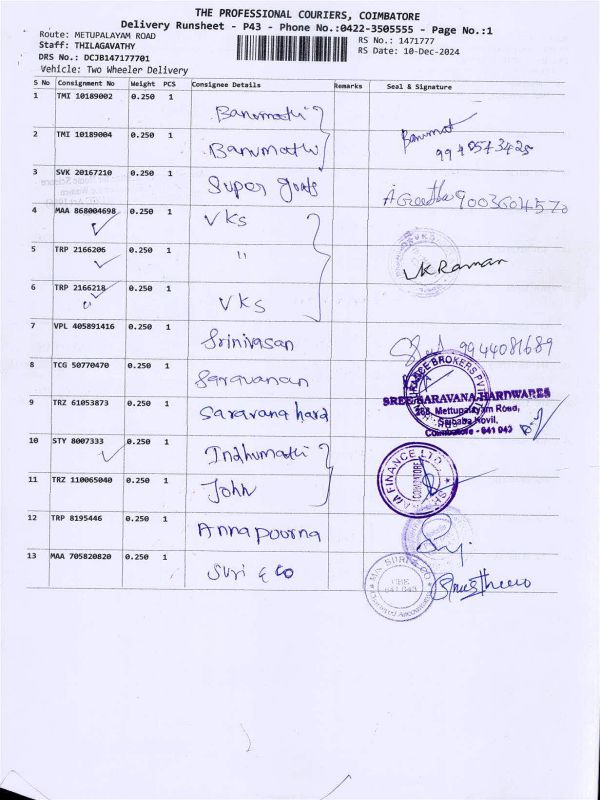 THE PROFESSIONAL COURIERS, COIMBATORE
Delivery Runsheet - P43 - Phone No.:0422-3505555 - Page No.:1
Route: METUPALAYAM ROAD
RS No.: 1471777
Staff: THILAGAVATHY
RS Date: 10-Dec-2024
DRS No.: DCJB147177701
Vehicle: Two Wheeler Delivery
S No Consignment No Weight PCS Consignee Details Remarks Seal & Signature
1 TMI 10189002 0.250 1 Banumathi
2 TMI 10189004 0.250 1 Banumathi Banumat
3 SVK 20167210 0.250 1 Super goods 9003604570
4 MAA 868004698 0.250 1 VKS
5 TRP 2166206 0.250 1 " VKRaman
6 TRP 2166218 0.250 1 VKS
7 VPL 405891416 0.250 1 Srinivasan 9944081689
8 TCG 50770470 0.250 1 Saravanan
9 TRZ 61053873 0.250 1 Saravana hard
SREE SARAVANA HARDWARES
288, Mettupalayam Road,
Saibaba Kovil,
Coimbatore - 641 043
10 STY 8007333 0.250 1 Indhumathi
FINANCE LTD
COIMBATORE
11 TRZ 110065040 0.250 1 John
12 TRP 8195446 0.250 1 Annapourna
13 MAA 705820820 0.250 1 Suri & Co
SURI & CO
CBE
641 043